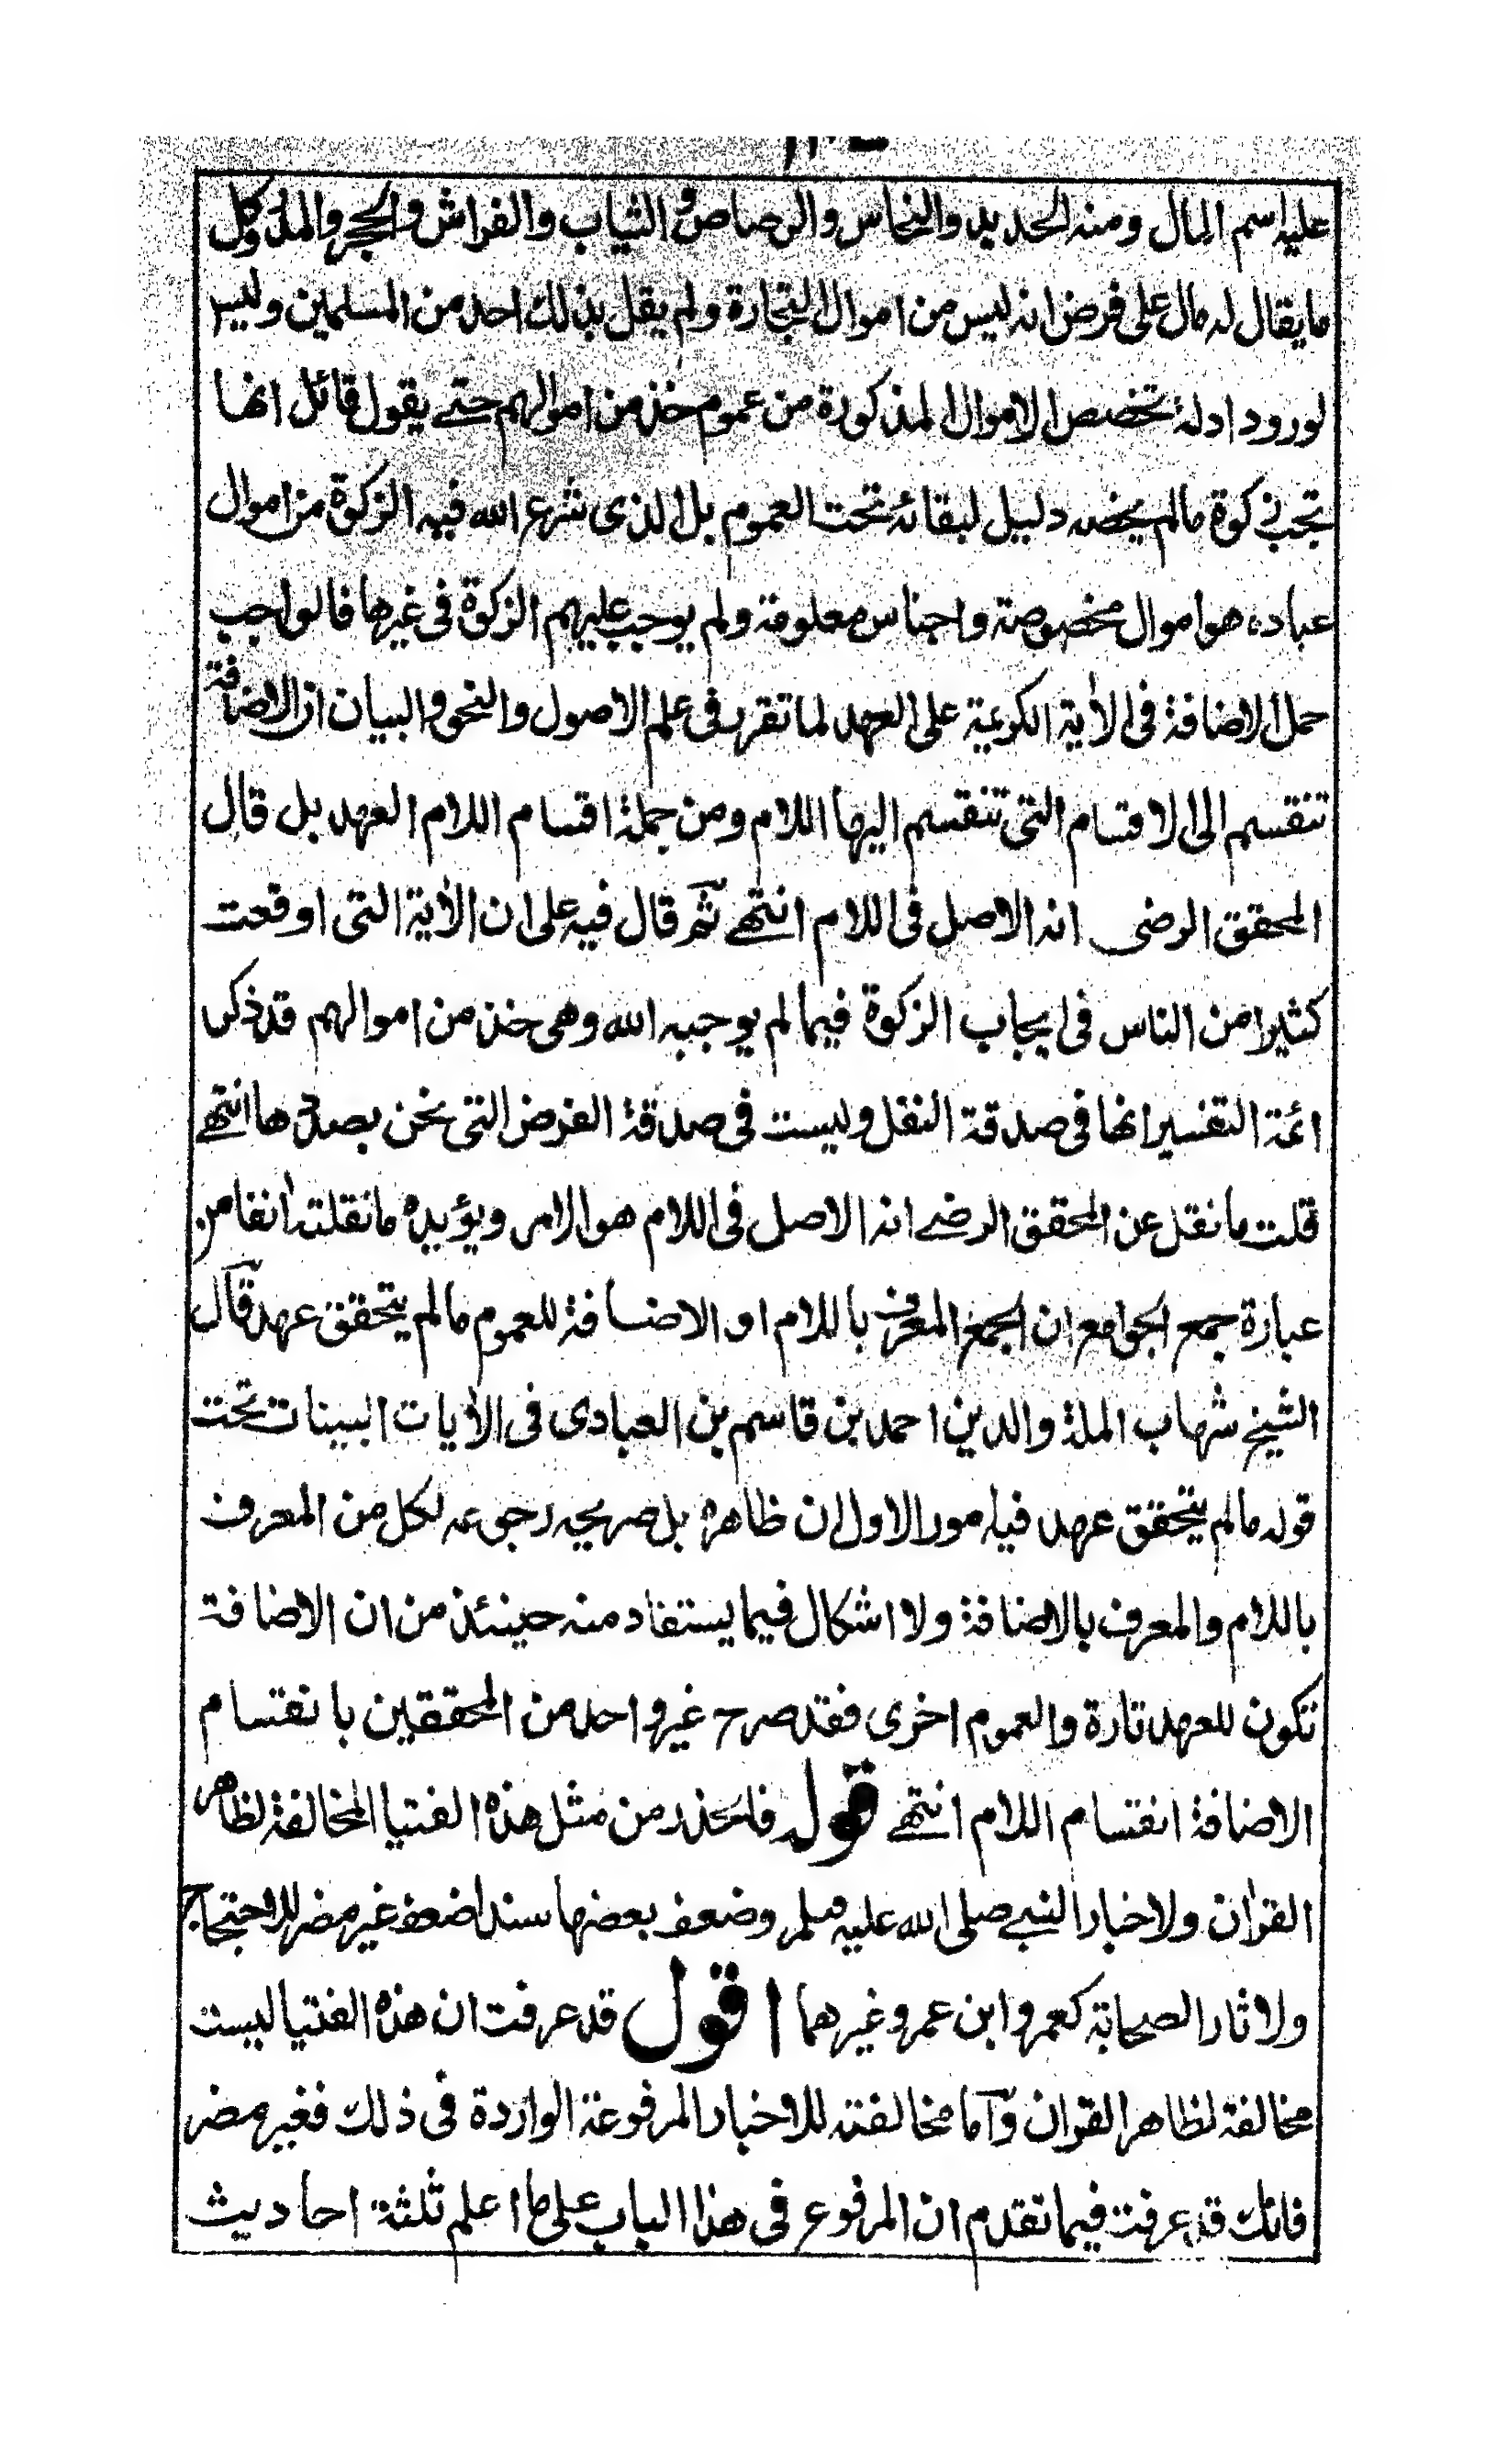 عليه اسم المال ومنه الحديد والنحاس والرصاص والثياب والفراش والحجر والمدر وكل
ما يقال له مال على فرض انه ليس من اموال التجارة ولم يقل بذلك احد من المسلمين وليس
لورود ادلة تخصص الاموال المذكورة من عموم خذ من اموالهم حتے يقول قائل انها
تجب زكوة مالم يخصه دليل لبقائه تحت العموم بل الذى شرع الله فيه الزكوة من اموال
عباده هو اموال مخصوصة واجناس معلومة ولم يوجب عليهم الزكوة فى غيرها فالواجب
حمل الاضافة فى الاٰية الكريمة على العهد لما تقرر فى علم الاصول والنحو والبيان ان الاضافة
تنقسم الى الاقسام التى تنقسم اليها اللام ومن جملة اقسام اللام العهد بل قال
المحقق الرضى انه الاصل فى اللام انتهے ثم قال فيه على ان الاٰية التى اوقعت
كثيرا من الناس فى ايجاب الزكوة فيما لم يوجبه الله وهى خذ من اموالهم قد ذكر
ائمة التفسير انها فى صدقة النفل وليست فى صدقة الفرض التى نحن بصددها انتهے
قلت ما نقل عن المحقق الرضے انه الاصل فى اللام هو الامر ويؤيده ما نقلته اٰنفا من
عبارة جمع الجوامع ان الجمع المعرف باللام او الاضافة للعموم مالم يتحقق عهد قال
الشيخ شهاب الملة والدين احمد بن قاسم بن العبادى فى الاٰيات البينات تحت
قوله مالم يتحقق عهد فيه امور الاول ان ظاهره بل صريحه رجوعه لكل من المعرف
باللام والمعرف بالاضافة ولا اشكال فيما يستفاد منه حينئذ من ان الاضافة
تكون للعهد تارة والعموم اخرى فقد صرح غير واحد من المحققين بانقسام
الاضافة انقسام اللام انتهے قوله فليحذر من مثل هذه الفتيا المخالفة لظاهر
القراٰن ولاخبار النبے صلى الله عليه وسلم وضعف بعضها سندا ضعف غير مضر للاحتجاج
ولاثار الصحابة كعمر وابن عمر وغيرهما اقول قد عرفت ان هذه الفتيا ليست
مخالفة لظاهر القراٰن واما مخالفته للاخبار المرفوعة الواردة فى ذلك فغير مضر
فانك قد عرفت فيما تقدم ان المرفوع فى هذا الباب على ما اعلم ثلثة احاديث